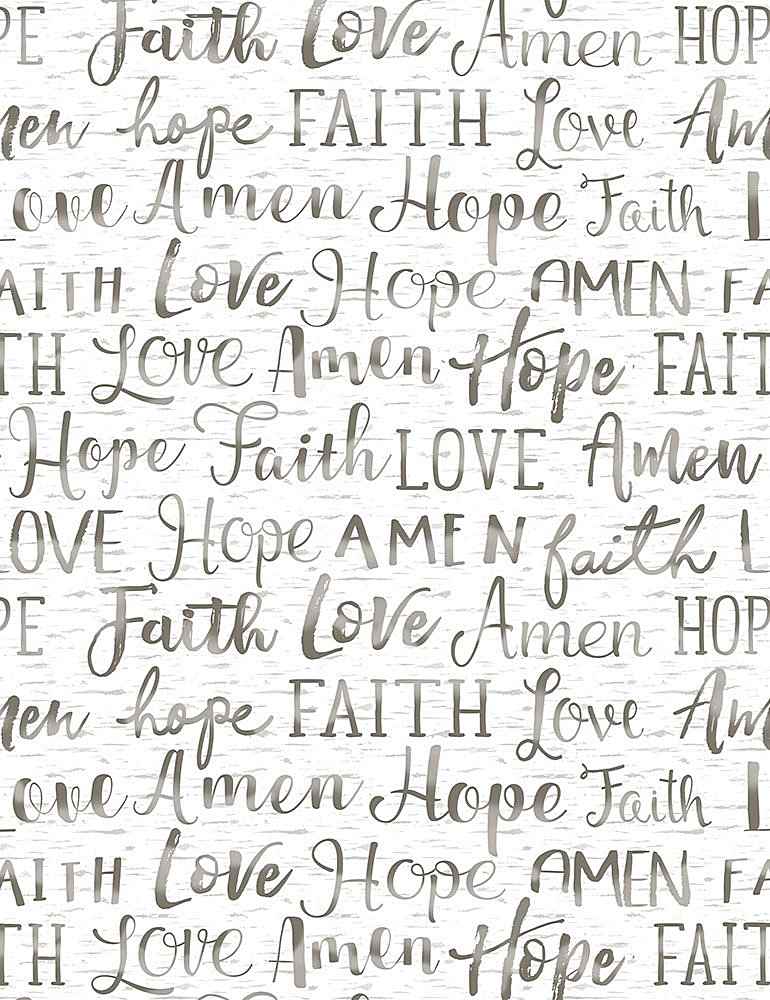 PE Faith Love Amen HOP
men hope FAITH Love Am
ove Amen Hope Faith
AITH Love Hope AMEN FA
TH Love Amen Hope FAIT
Hope Faith LOVE Amen
OVE Hope AMEN faith L
PE Faith Love Amen HOP
men hope FAITH Love Am
ove Amen Hope Faith
AITH Love Hope AMEN FA
TH Love Amen Hope FAIT